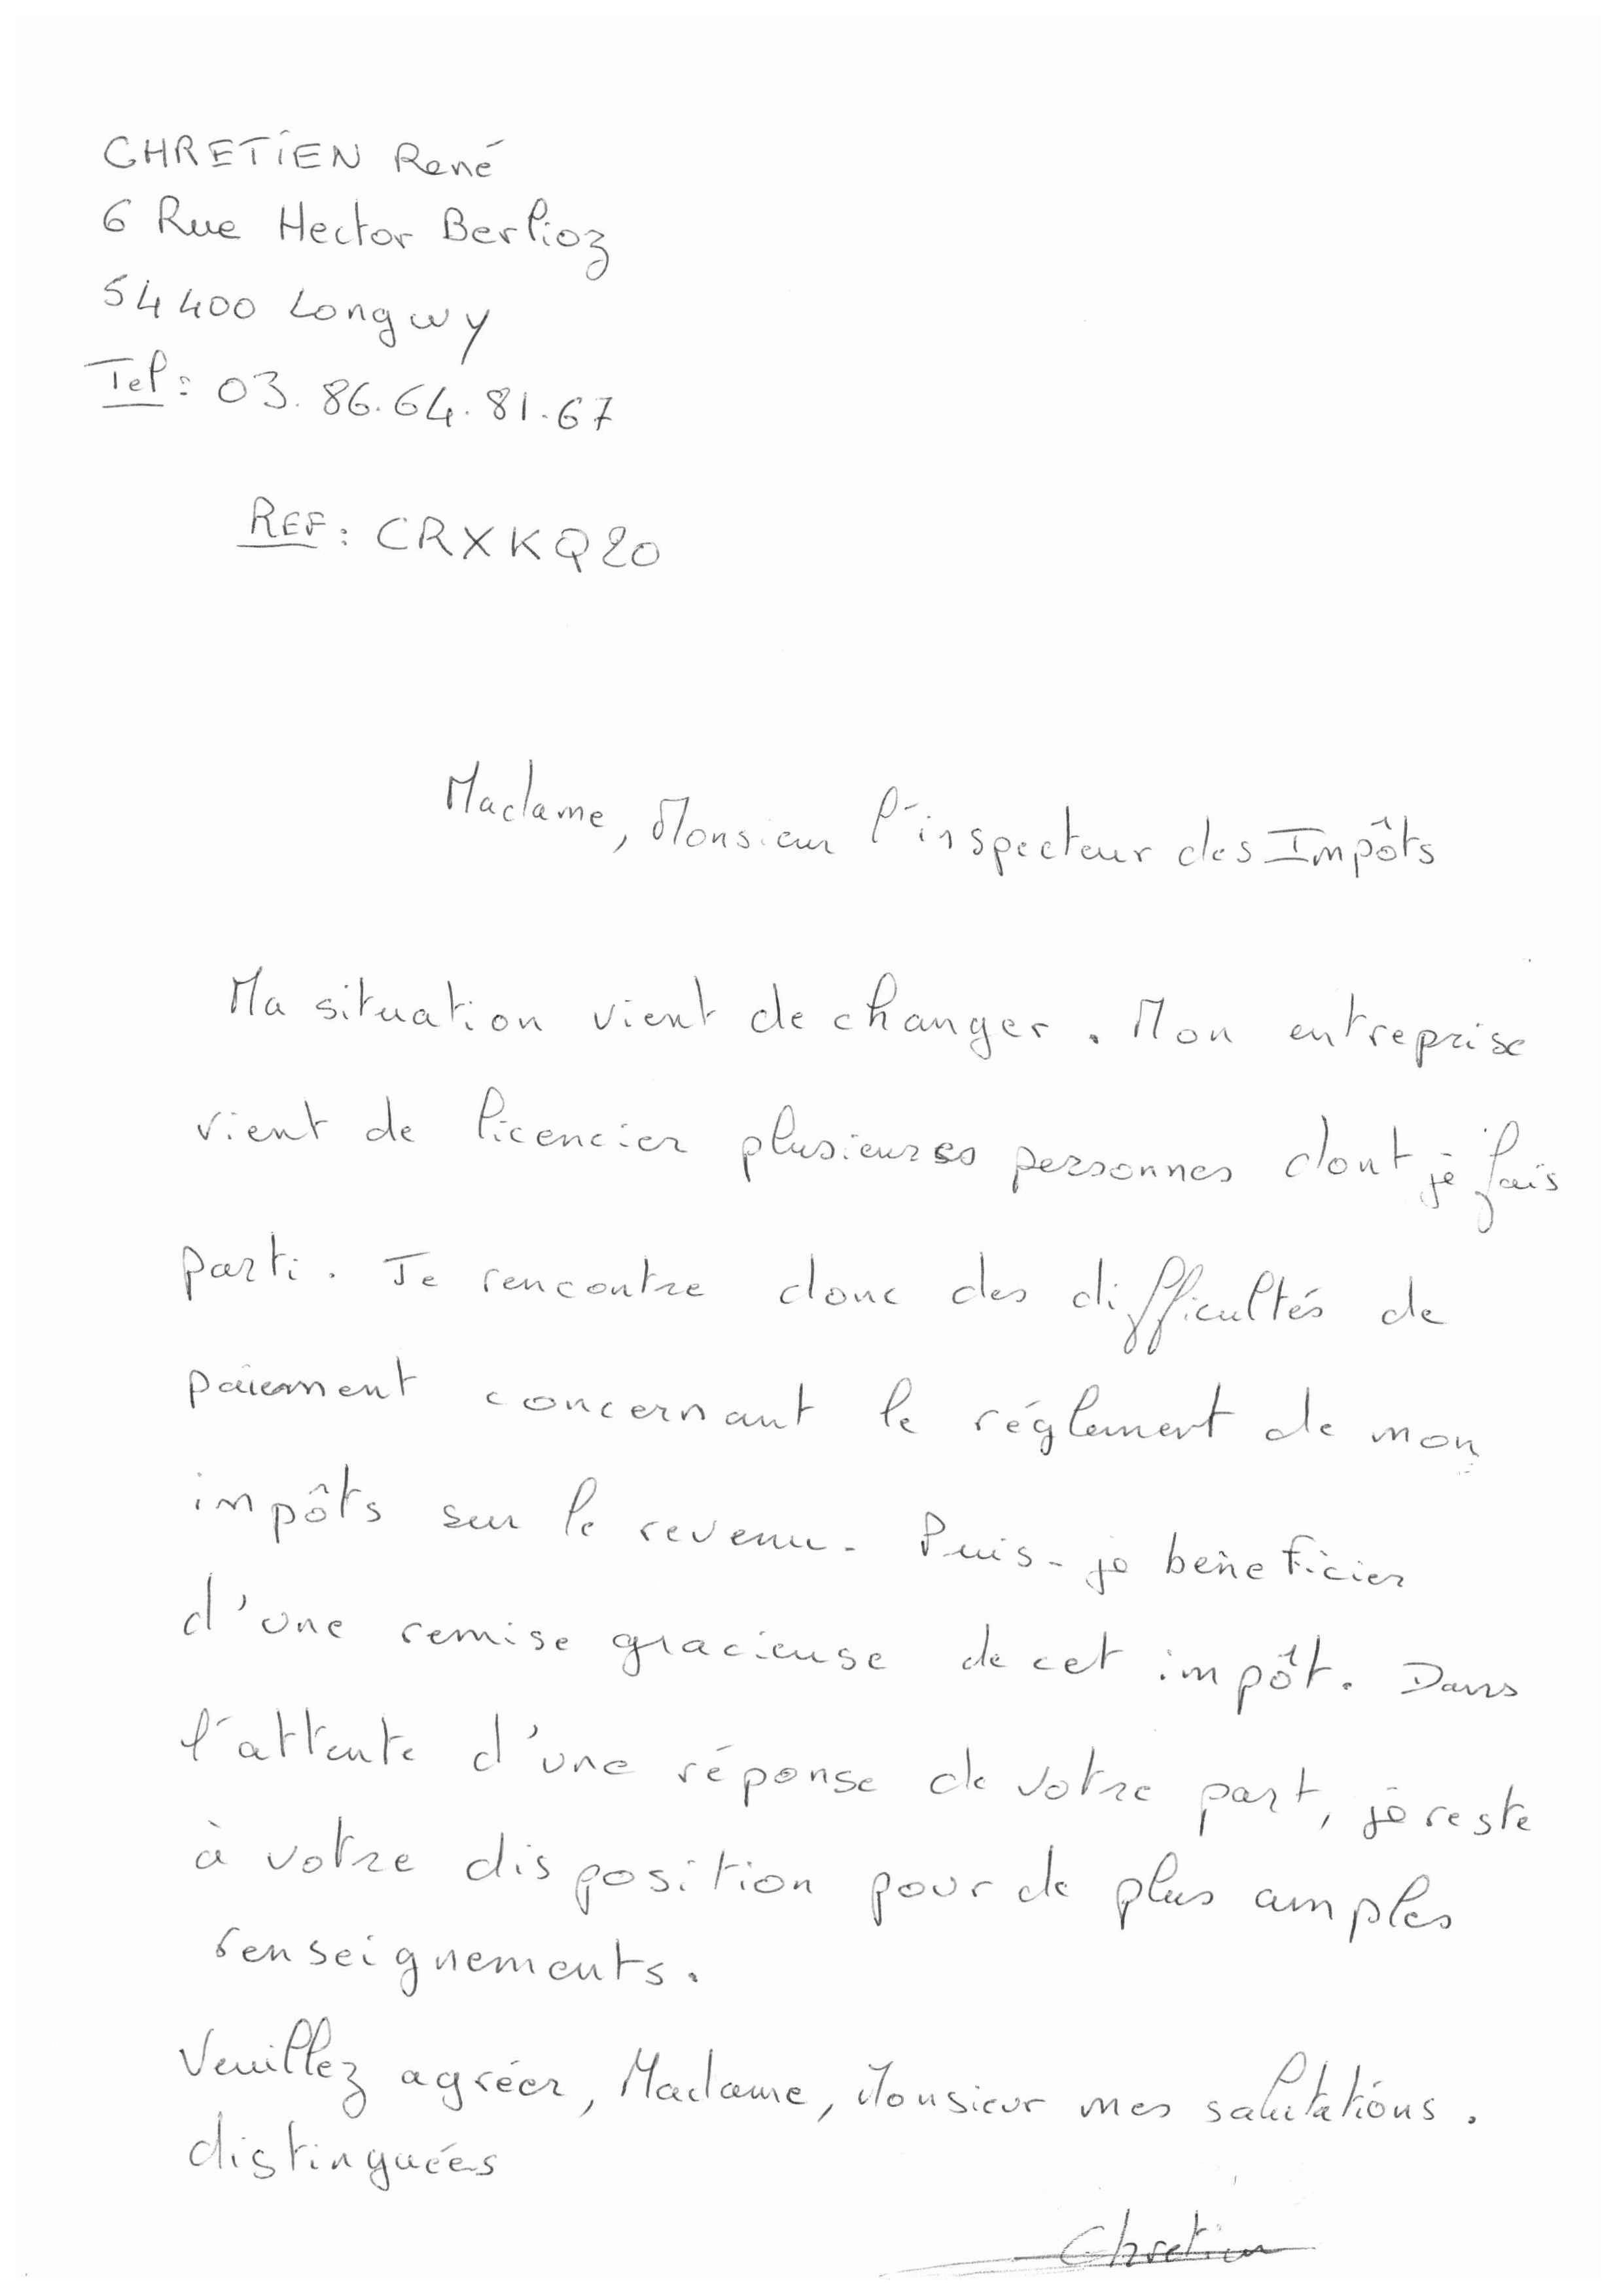 CHRETIEN René
6 Rue Hector Berlioz
54400 Longwy
Tel : 03.86.64.81.67
REF : CRXKQ20
Madame, Monsieur l'inspecteur des Impôts
Ma situation vient de changer. Mon entreprise
vient de licencier plusieurs personnes dont je fais
parti. Je rencontre donc des difficultés de
paiement concernant le réglement de mon
impôts sur le revenu. Puis-je béneficier
d'une remise gracieuse de cet impôt. Dans
l'attente d'une réponse de votre part, je reste
à votre disposition pour de plus amples
renseignements.
Veuillez agréer, Madame, Monsieur mes salutations.
distinguées
Chretien